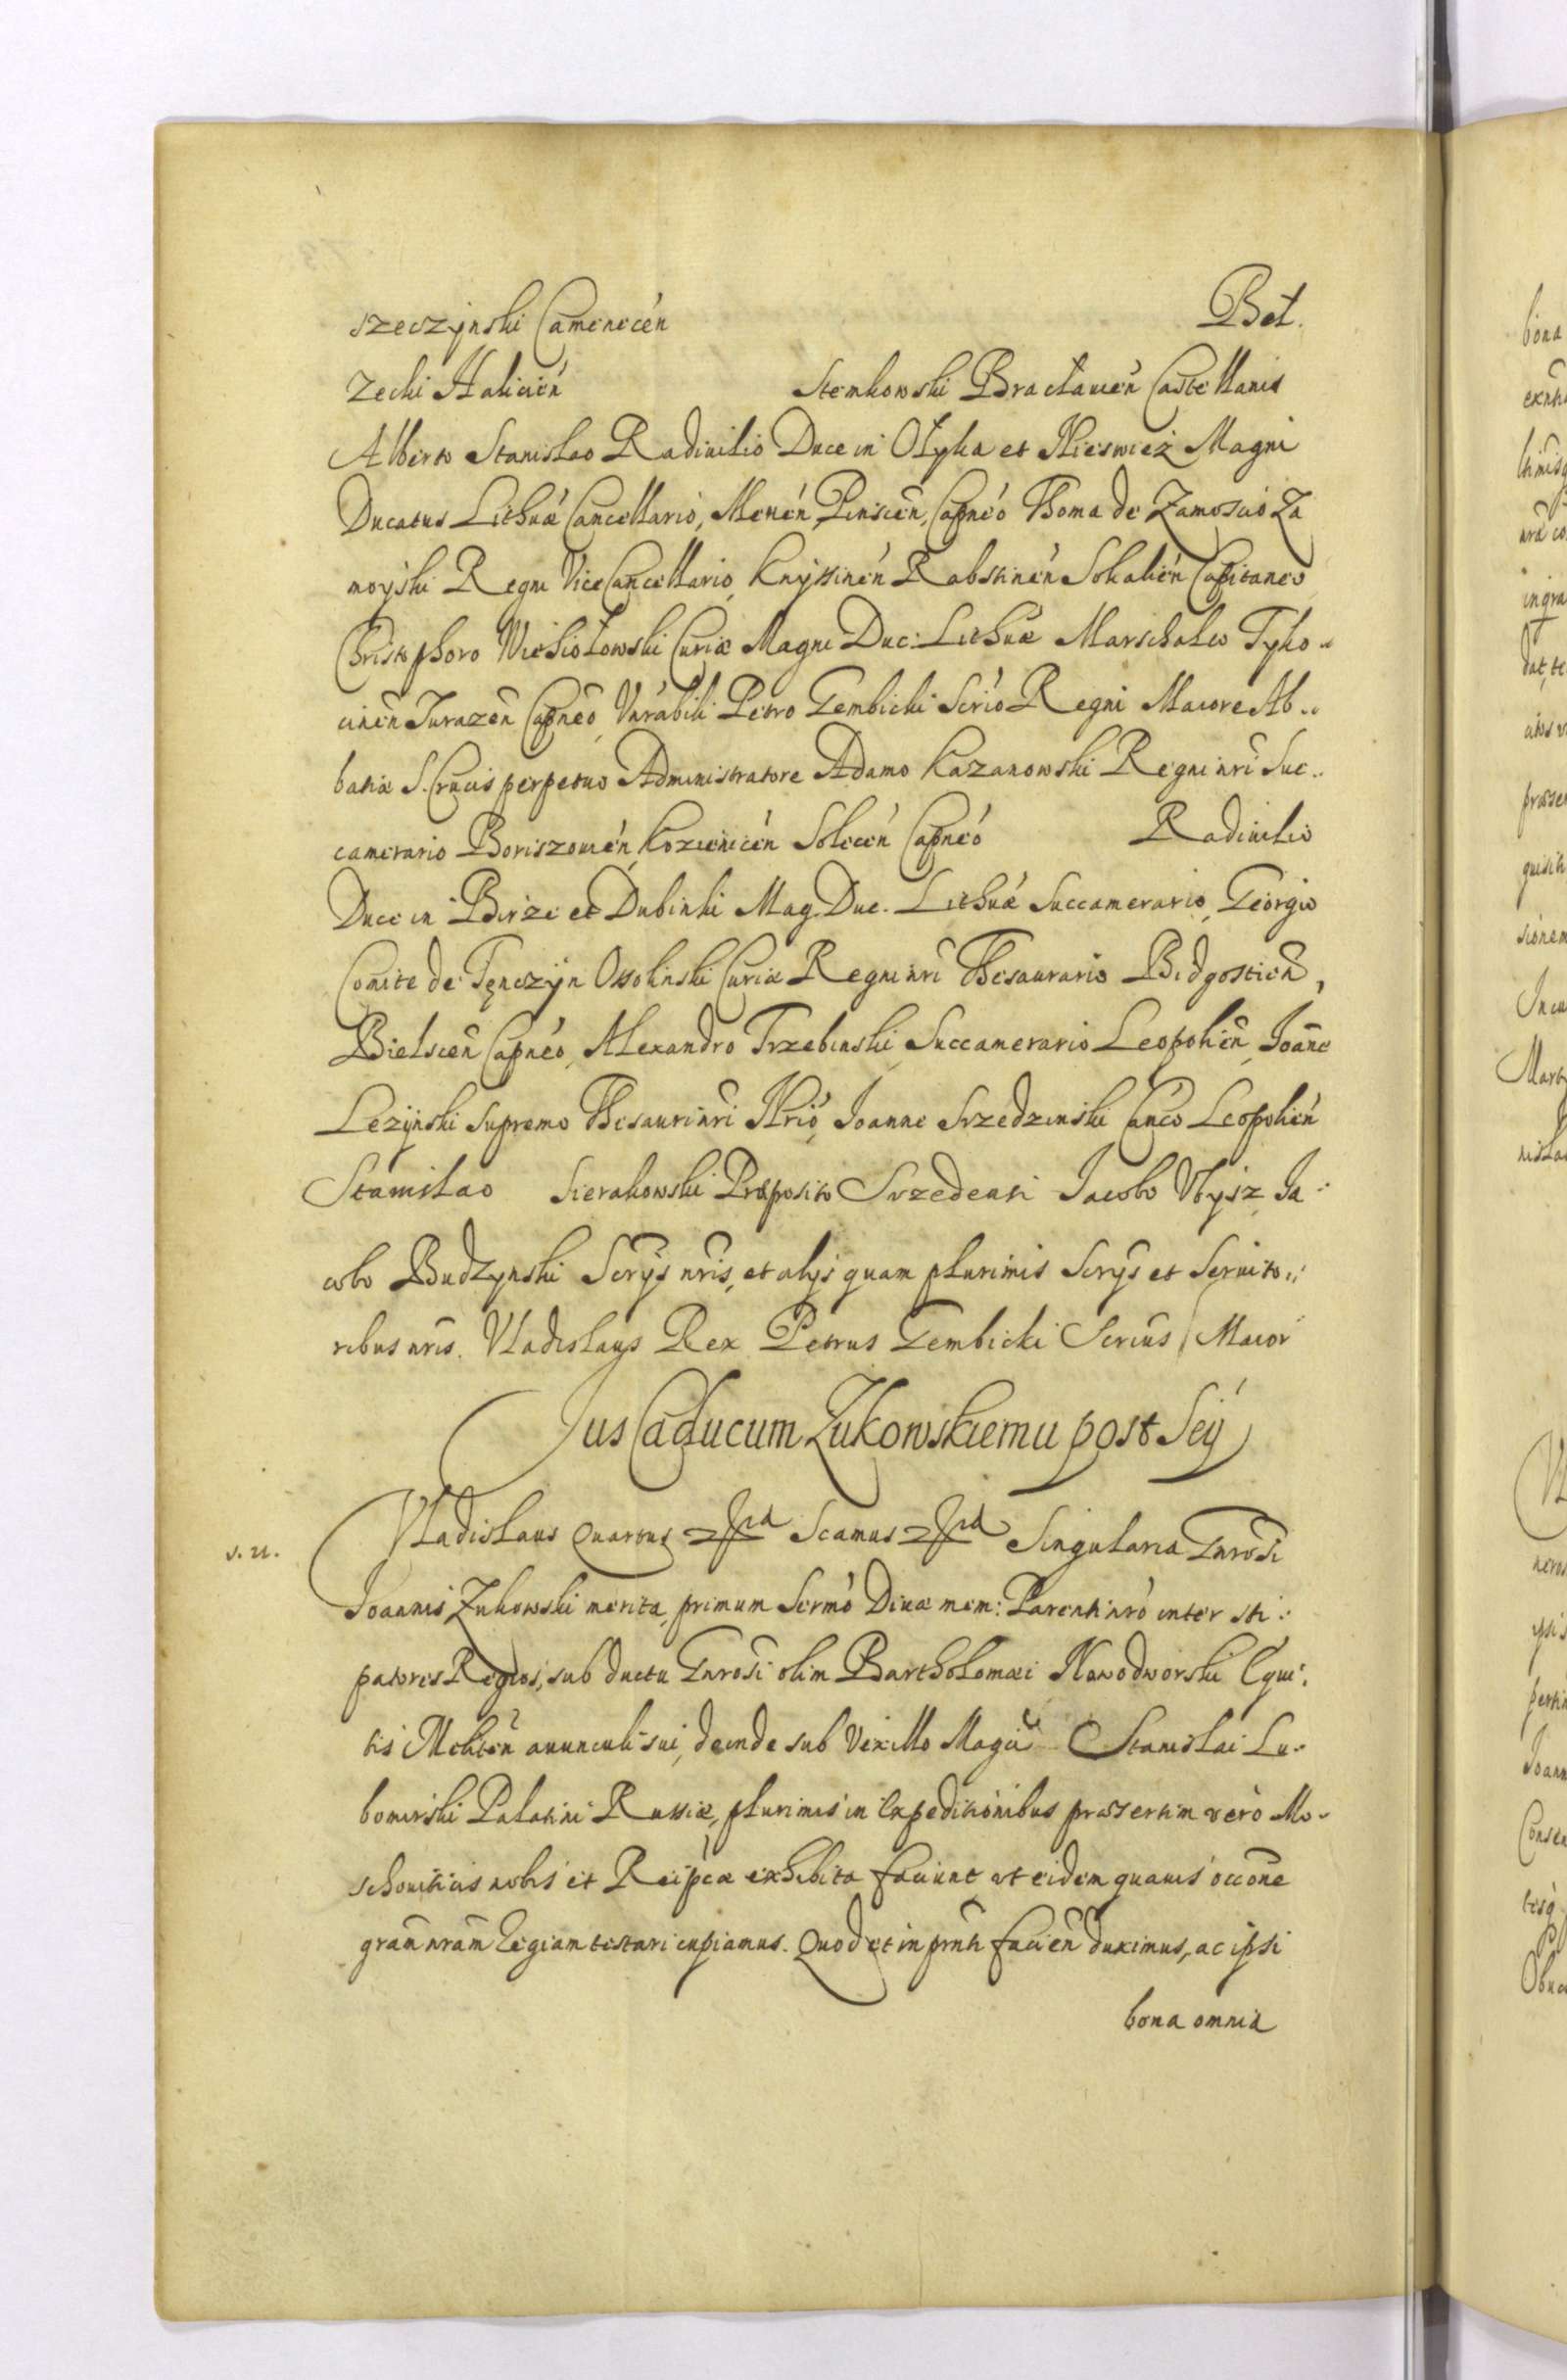 szeczÿnski Camenecén Beł.
zecki Halicień Stemkowski Bracłauień Castellanis
Alberto Stanislao Radiuilio Duce in Ołyka et Nieswież Magni
Ducatus Lithuæ Cancellario, Pinscen, Capnéo Thoma de Zamoscio Za
moÿski Regni ViceCancellario, Knÿssinén Rabstinén Sokalién Capitaneo
Christophoro Wiesiołowski Curiæ Magni Duc: Lithuæ Marschalco Tyko
cinen Jurazen Capneo, Vnrabili Petro Gembicki Scrio Regni Maiore Ab
batiæ S. Crucis perpetuo Administratore Adamo Kazanowski Regni nri Suc
camerario Boriszouién, Koziénicén Solecén Capnéo Radiuilio
Duce in Birze et Dubinki Mag. Duc. Lithuæ Succamerario, Georgio
Comite de Tęnczÿn Ossolinski Curiæ Regni nri Thesaurario Bidgostien,
Bielscen Capneo, Alexandro Trzebinski Succamerario Leopolien, Joãne
Lezÿnski supremo Thesauri nri Nrio, Joanne Srzedzinski Canco Leopolién
Stanislao Sierakowski Præposito Srzedensi Jacobo Vbysz, Ja
cobo Budzynski Scrijs nris, et alijs quam plurimis Scrijs et Seruito
ribus nris. Vladislaus Rex Petrus Gembicki Scrius Maior
Jus Caducum Zukowskiemu post Seÿ
v. u. Vladislaus Quartus Scamus Singularia Gnrosi
Joannis Zukowski merita, primum Sermo Diuæ mem: Parenti nro inter sti
patores Regios, sub ductu Gnrosi olim Bartholomæi Nowodworski Equi
tis Meliten auunculi sui, deinde sub Vexillo Magci Stanislai Lu
bomirski Palatini Russiæ, plurimis in Expeditionibus præsertim vero Mo
schouiticis nobis et Reipcæ exhibita faciunt, vt eidem quauis occone
gram nram Regiam testari cupiamus. Quod et in prnti facien duximus, ac ipsi
bona omnia